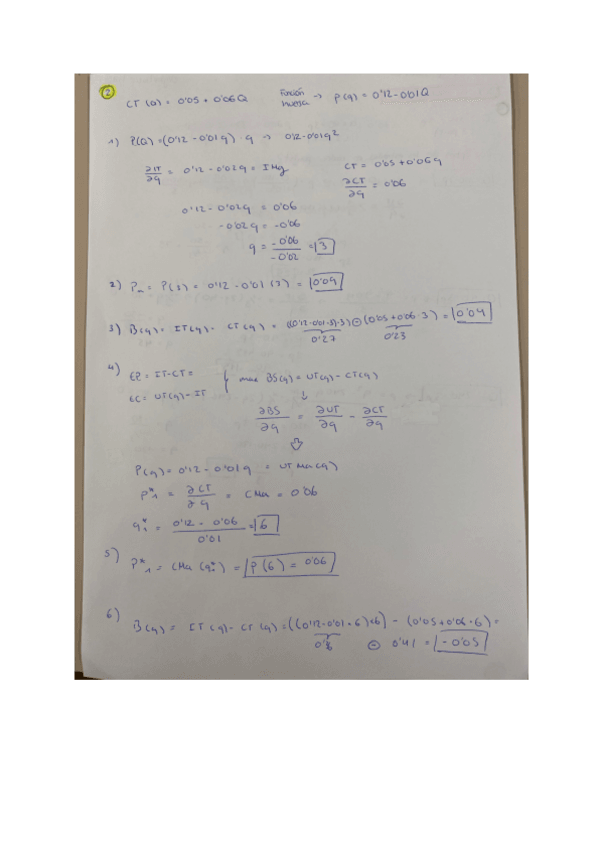 ②
CT(Q) = 0'05 + 0'06Q Función inversa → P(q) = 0'12 - 0'01Q
1) P(Q) = (0'12 - 0'01q) · q → 0'12 - 0'01q²
∂IT/∂q = 0'12 - 0'02q = IMg CT = 0'05 + 0'06q
∂CT/∂q = 0'06
0'12 - 0'02q = 0'06
-0'02q = -0'06
q = -0'06/-0'02 = 3
2) Pm = P(3) = 0'12 - 0'01(3) = 0'09
3) B(q) = IT(q) - CT(q) = ((0'12-0'01·3)·3) ⊖ (0'05+0'06·3) = 0'04
0'27 0'23
4) EP = IT - CT =
EC = UT(q) - IT
max BS(q) = UT(q) - CT(q)
↓
∂BS/∂q = ∂UT/∂q - ∂CT/∂q
⇩
P(q) = 0'12 - 0'01q = UTMa(q)
P*₁ = ∂CT/∂q = CMa = 0'06
q*₁ = 0'12 - 0'06/0'01 = 6
5) P*₁ = CMa(q*₁) = P(6) = 0'06
6) B(q) = IT(q) - CT(q) = ((0'12-0'01·6)·6) - (0'05+0'06·6) =
⊖ 0'41 = -0'05